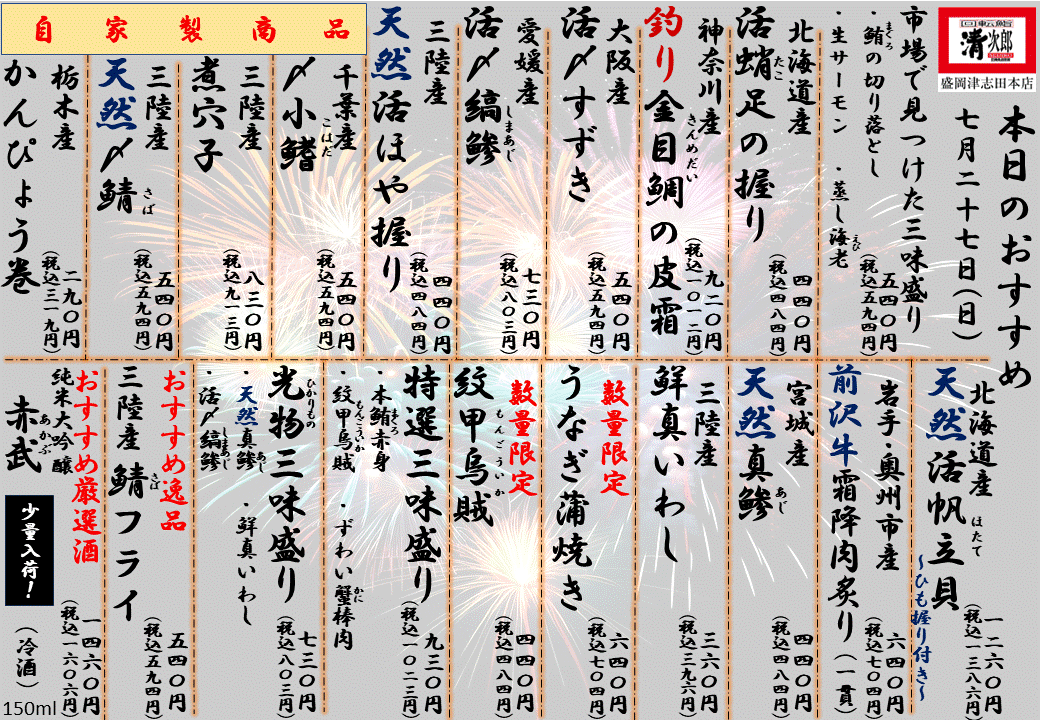 回転鮨
清次郎
盛岡津志田本店
本日のおすすめ
七月二十七日(日)
市場で見つけた三味盛り
・鮪の切り落とし
まぐろ
・生サーモン ・蒸し海老
えび
五四〇円
(税込五九四円)
北海道産
活蛸足の握り
たこ
四四〇円
(税込四八四円)
神奈川産
釣り金目鯛の皮霜
きんめだい
九二〇円
(税込一〇一二円)
大阪産
活〆すずき
五四〇円
(税込五九四円)
愛媛産
活〆縞鯵
しまあじ
七三〇円
(税込八〇三円)
三陸産
天然活ほや握り
四四〇円
(税込四八四円)
自家製商品
千葉産
〆小鰭
こはだ
五四〇円
(税込五九四円)
三陸産
煮穴子
八三〇円
(税込九一三円)
三陸産
天然〆鯖
さば
五四〇円
(税込五九四円)
栃木産
かんぴょう巻
二九〇円
(税込三一九円)
北海道産
天然活帆立貝
ほたて
~ひも握り付き~
一二六〇円
(税込一三八六円)
岩手・奥州市産
前沢牛霜降肉炙り(一貫)
六四〇円
(税込七〇四円)
宮城産
天然真鯵
あじ
四四〇円
(税込四八四円)
三陸産
鮮真いわし
三六〇円
(税込三九六円)
数量限定
うなぎ蒲焼き
六四〇円
(税込七〇四円)
数量限定
紋甲烏賊
もんごういか
四四〇円
(税込四八四円)
特選三味盛り
・本鮪赤身
まぐろ
・紋甲烏賊 ・ずわい蟹棒肉
もんごういか
かに
九三〇円
(税込一〇二三円)
光物三味盛り
ひかりもの
・天然真鯵 ・鮮真いわし
あじ
・活〆縞鯵
しまあじ
七三〇円
(税込八〇三円)
おすすめ逸品
三陸産 鯖フライ
さば
五四〇円
(税込五九四円)
おすすめ厳選酒
純米大吟醸
赤武
あかぶ
少量入荷!
(冷酒)
一四六〇円
(税込一六〇六円)
150ml